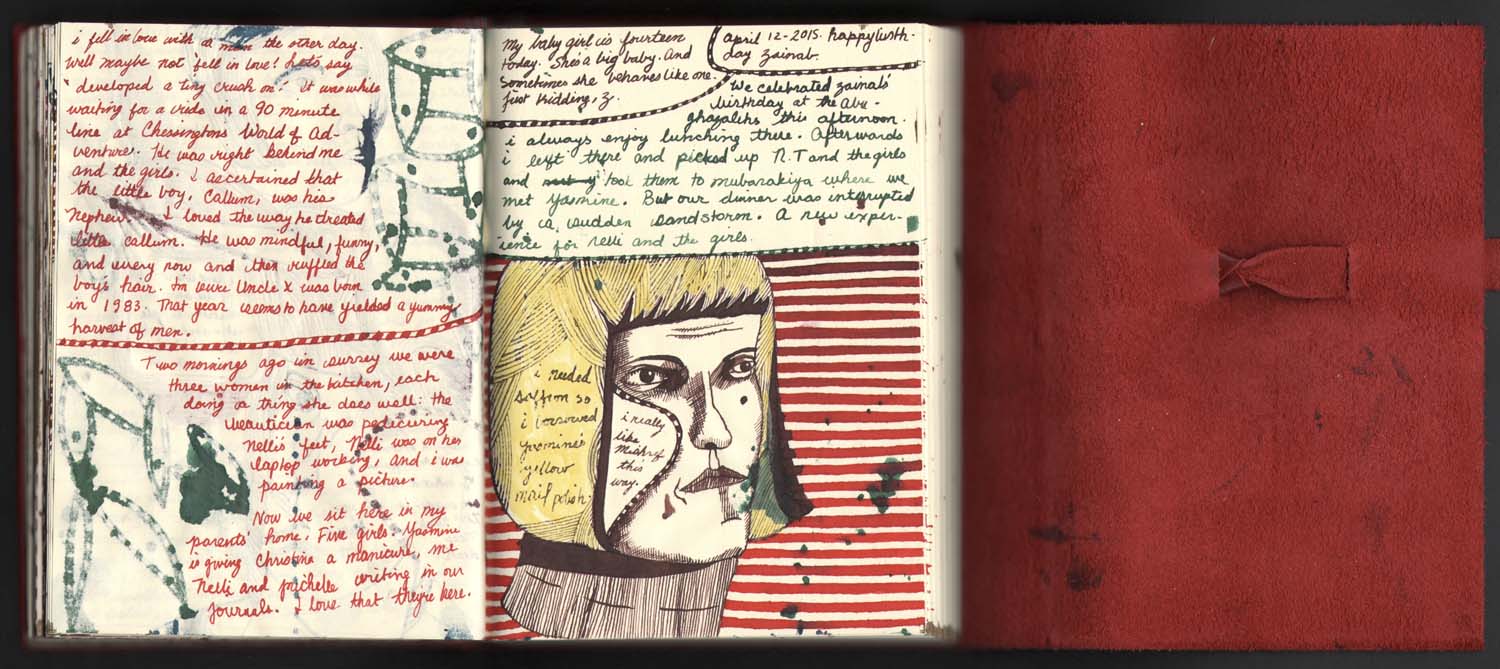 i fell in love with a man the other day.
well maybe not 'fell in love! let's say
'developed a tiny crush on.' It was while
waiting for a ride in a 90 minute
line at Chessingtons World of Ad-
venture. He was right behind me
and the girls. I ascertained that
the little boy, Callum, was his
nephew. I loved the way he treated
little callum. He was mindful, funny,
and every now and then ruffled the
boy's hair. I'm sure Uncle X was born
in 1983. That year seems to have yielded a yummy
harvest of men.
Two mornings ago in surrey we were
three women in the kitchen, each
doing a thing she does well: the
beautician was pedicuring
Nelli's feet, Nelli was on her
laptop working, and i was
painting a picture.
Now we sit here in my
parents' home. Five girls. Yasmine
is giving Christina a manicure, me
Nelli and michelle writing in our
journals. I love that they're here.
My baby girl is fourteen
today. She's a big baby. And
Sometimes she behaves like one.
just kidding, z.
april 12-2015. happy birth-
day zainab.
We celebrated zainab's
birthday at the Abu-
ghazalehs this afternoon.
i always enjoy lunching there. Afterwards
i left there and picked up N.T and the girls
and took them to mubarakiya where we
met Yasmine. But our dinner was interrupted
by a sudden sandstorm. A new exper-
ience for Nelli and the girls.
i needed
saffron so
i borrowed
yasmine's
yellow
nail polish.
i really
like
Mishref
this
way.